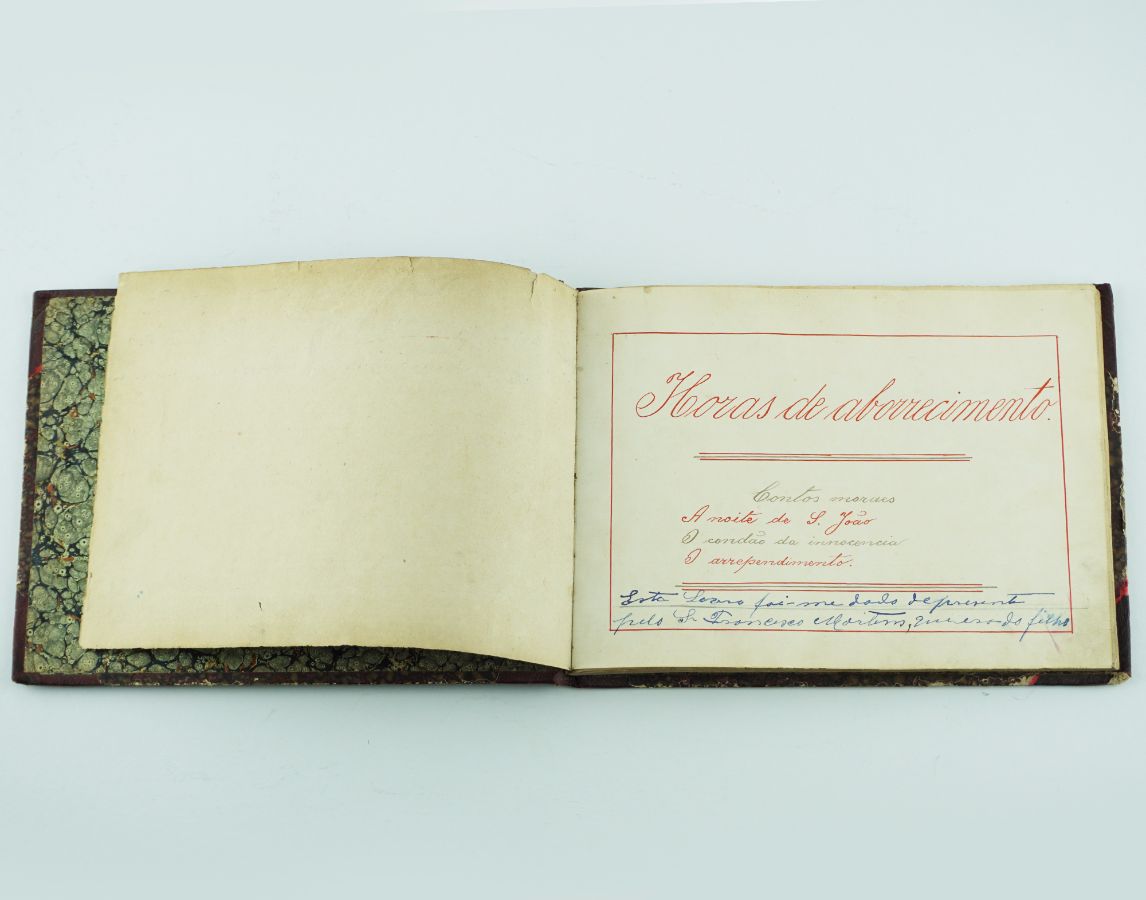 Horas de aborrecimento.
Contos moraes
A noite de S. João
O condão da innocencia
O arrependimento.
Este Livro foi-me dado de presente
pelo Sr Francisco Martins, que era do filho